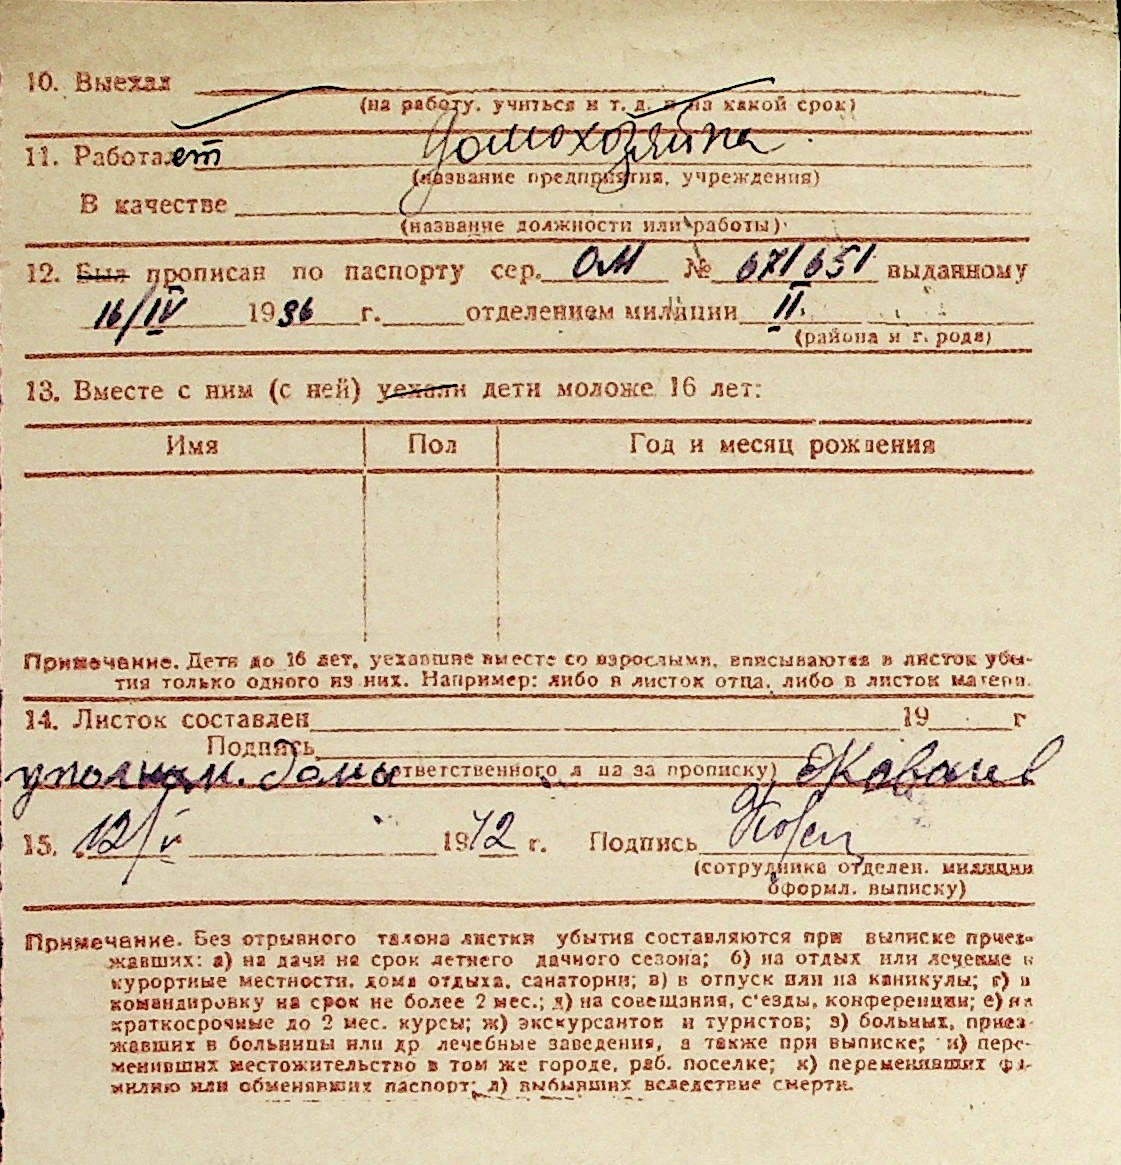 10. Выехал
(на работу, учиться и т. д. и на какой срок)
11. Работает Домохозяйка
(название предприятия, учреждения)
В качестве
(название должности или работы)
12. Был прописан по паспорту сер. ОМ № 671651 выданному
16/IV 1936 г. отделением милиции II.
(района и города)
13. Вместе с ним (с ней) уехали дети моложе 16 лет:
Имя Пол Год и месяц рождения
Примечание. Дети до 16 лет, уехавшие вместе со взрослыми, вписываются в листок убы-
тия только одного из них. Например: либо в листок отца, либо в листок матери.
14. Листок составлен 19 г
Подпись
уполном. дома ответственного за прописку)
15. 12/V 1942 г. Подпись
(сотрудника отделен. милиции
оформл. выписку)
Примечание. Без отрывного талона листки убытия составляются при выписке приез-
жавших: а) на дачи на срок летнего дачного сезона; б) на отдых или лечение в
курортные местности, дома отдыха, санатории; в) в отпуск или на каникулы; г) в
командировку на срок не более 2 мес.; д) на совещания, с'езды, конференции; е) на
краткосрочные до 2 мес. курсы; ж) экскурсантов и туристов; з) больных, приез-
жавших в больницы или др лечебные заведения, а также при выписке; и) пере-
менивших местожительство в том же городе, раб. поселке; к) переменивших фа-
милию или обменявших паспорт; л) выбывших вследствие смерти.